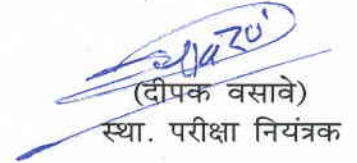 (दीपक वसावे)
स्था. परीक्षा नियंत्रक